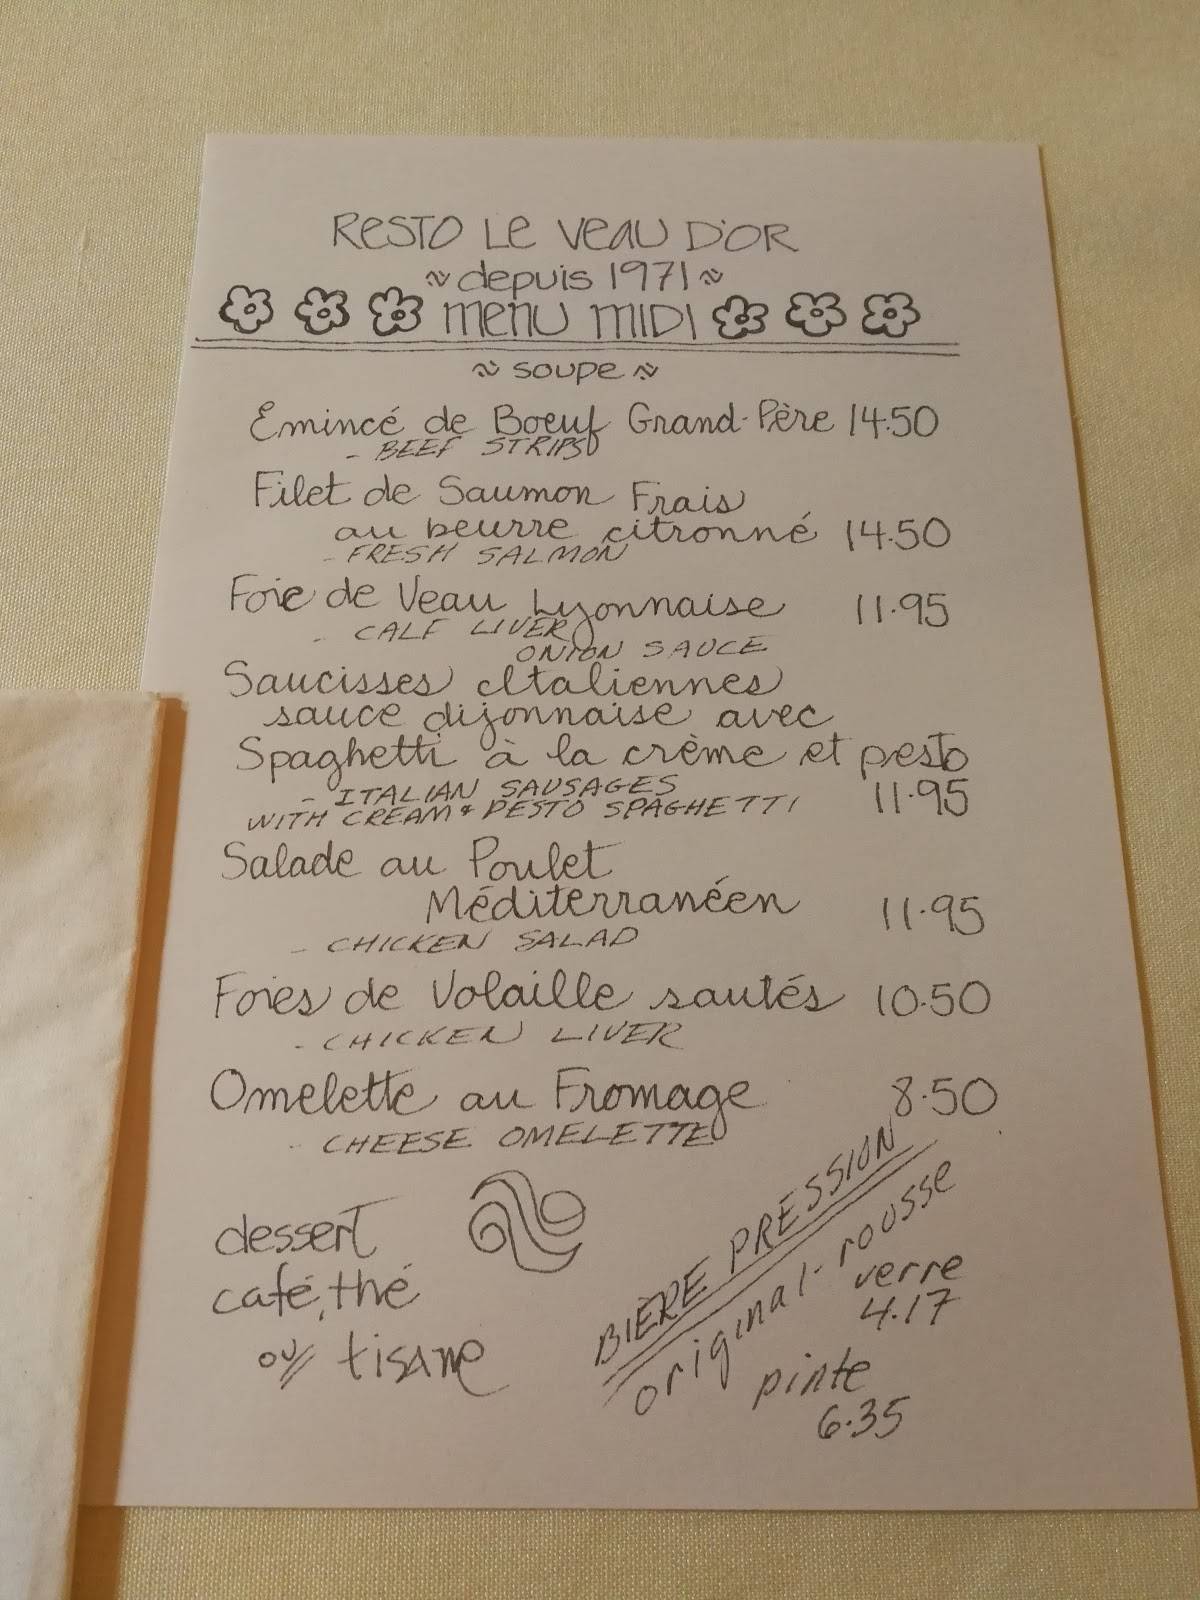 Resto Le Veau D'Or
~ depuis 1971 ~
menu midi
~ soupe ~
Emincé de Boeuf Grand-Père 14.50
- BEEF STRIPS
Filet de Saumon Frais
au beurre citronné 14.50
- FRESH SALMON
Foie de Veau Lyonnaise 11.95
- CALF LIVER
ONION SAUCE
Saucisses Italiennes
sauce dijonnaise avec
Spaghetti à la crème et pesto
- ITALIAN SAUSAGES 11.95
WITH CREAM & PESTO SPAGHETTI
Salade au Poulet
Méditerranéen 11.95
- CHICKEN SALAD
Foies de Volaille sautés 10.50
- CHICKEN LIVER
Omelette au Fromage 8.50
- CHEESE OMELETTE
dessert
café, thé
ou tisane
BIÈRE PRESSION
original-rousse
verre
4.17
pinte
6.35